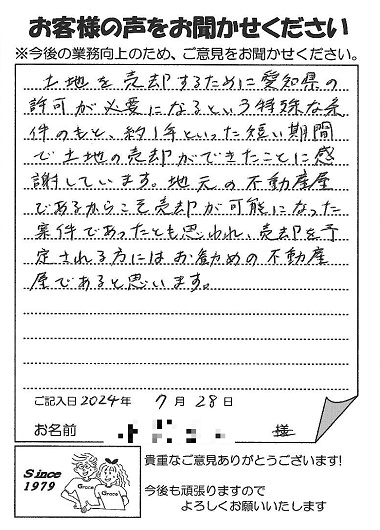 お客様の声をお聞かせください
※今後の業務向上のため、ご意見をお聞かせください。
土地を売却するために愛知県の
許可が必要になるという特殊な条
件のもと、約1年といった短い期間
で土地の売却ができたことに感
謝しています。地元の不動産屋
であるからこそ売却が可能になった
案件であったとも思われ、売却を予
定される方にはお勧めの不動産
屋であると思います。
ご記入日2024年 7月 28日
お名前 様
Since
1979
Grace
Grace
貴重なご意見ありがとうございます!
今後も頑張りますので
よろしくお願いいたします